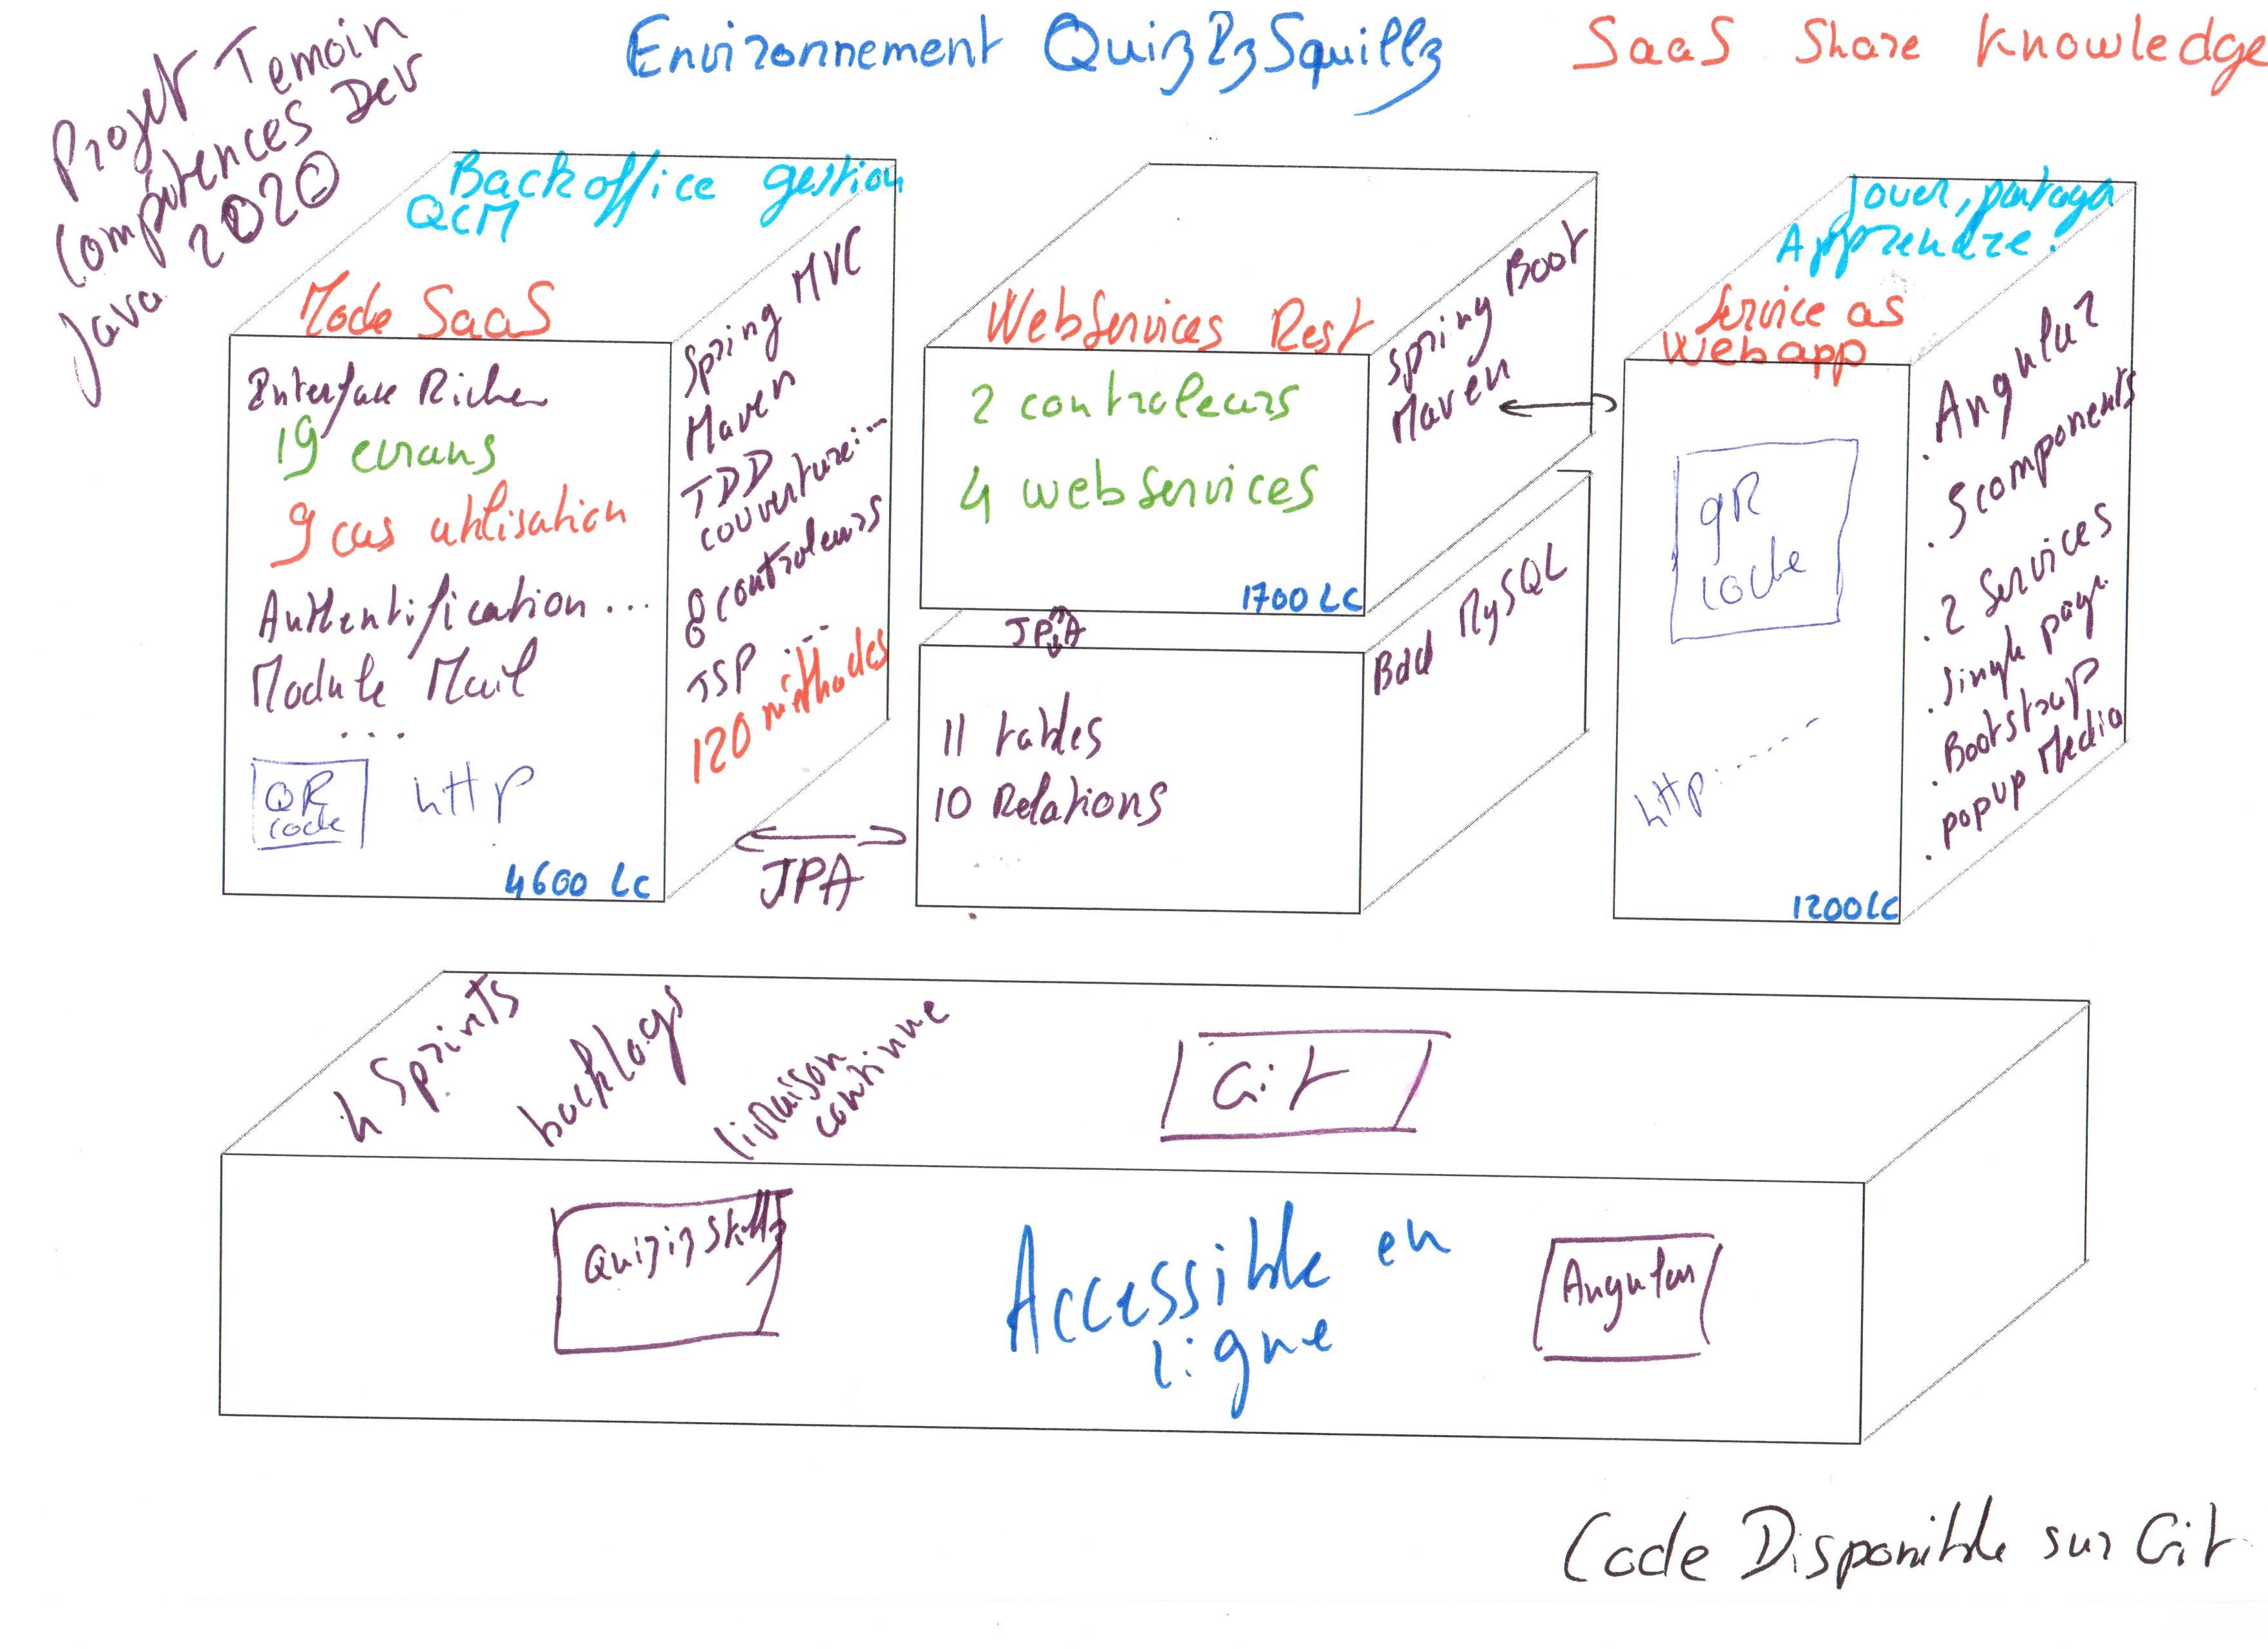 Projet Temoin
Compétences Dev
Java 2020
Environnement QuizPzSquillz
SaaS Share Knowledge
Backoffice gestion
QCM
Mode SaaS
Interface Riche
19 ecrans
9 cas utilisation
Authentification ...
Module Mail
...
QR
code
http
4600 LC
Spring MVC
Maven
TDD
couverture...
8 controleurs
JSP ...
120 méthodes
JPA
WebServices Rest
2 controleurs
4 webservices
1700 LC
Spring Boot
Maven
JPA
11 tables
10 Relations
Bdd MySQL
Jouer, partager
Apprendre.
Service as
Webapp
QR
code
http:------
1200 LC
. Angular 2
. 5 components
. 2 Services
. Single page.
. Bootstrap
. popup Media
n Sprints
backlogs
livraison
continue
Git
Quizizskillz
Accessible en
ligne
Angular
Code Disponible sur Git